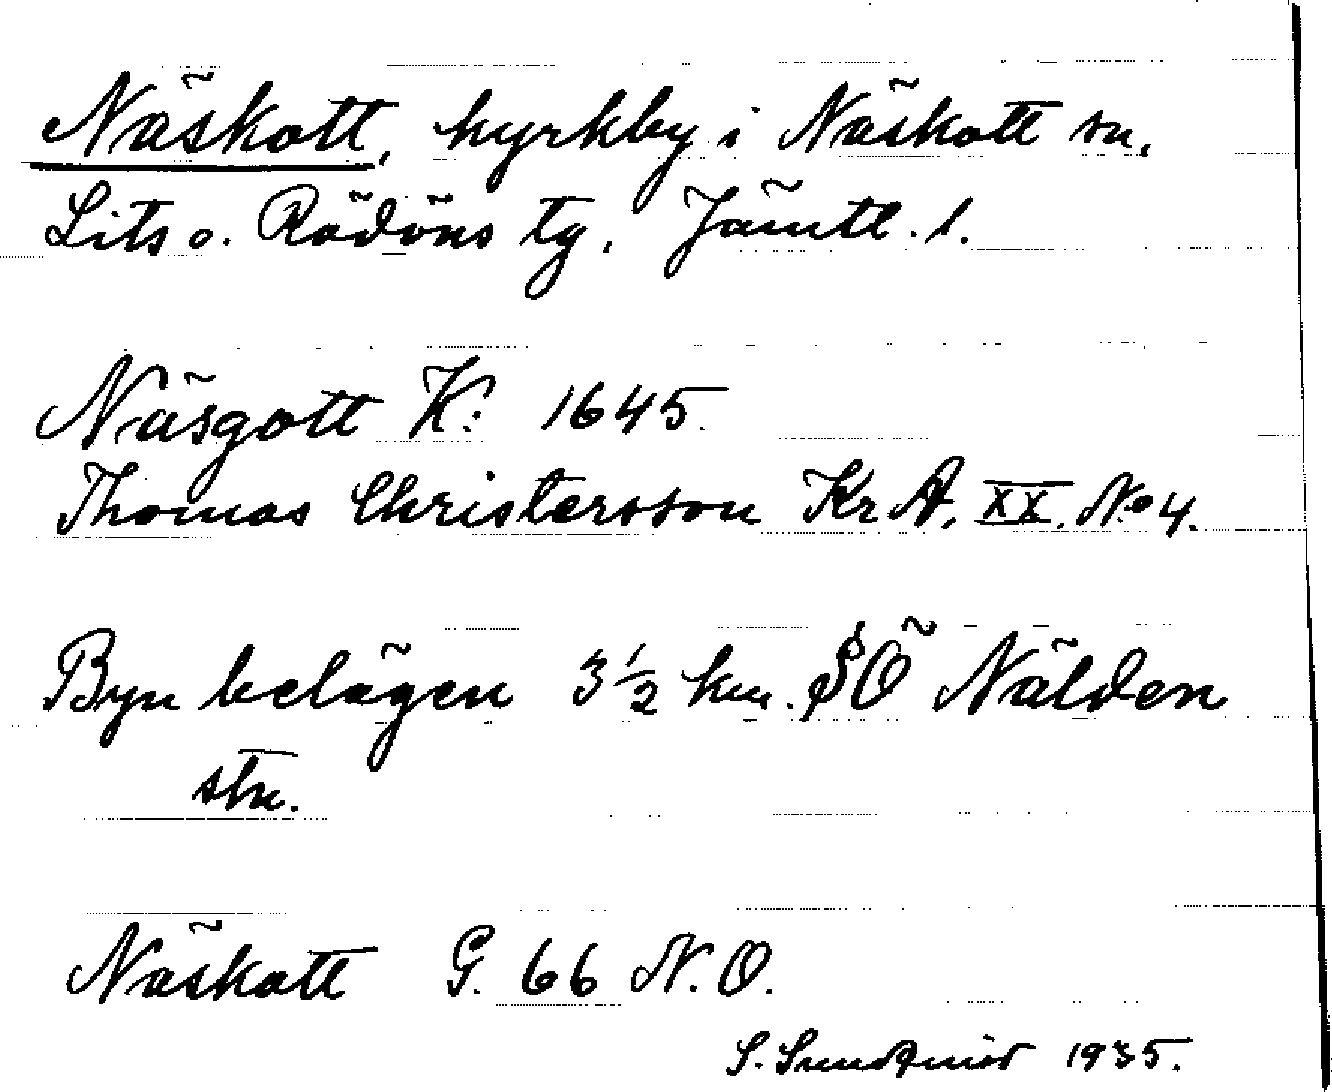 Näskott, kyrkby i Näskott sn,
Lits o. Rödöns tg, Jämtl. l.
Näsgott K: 1645.
Thomas Christersson Kr A, XX. No 4.
Byn belägen 3 1/2 km. SÖ Nälden
stn.
Näskott G. 66 N.O.
S. 1935.